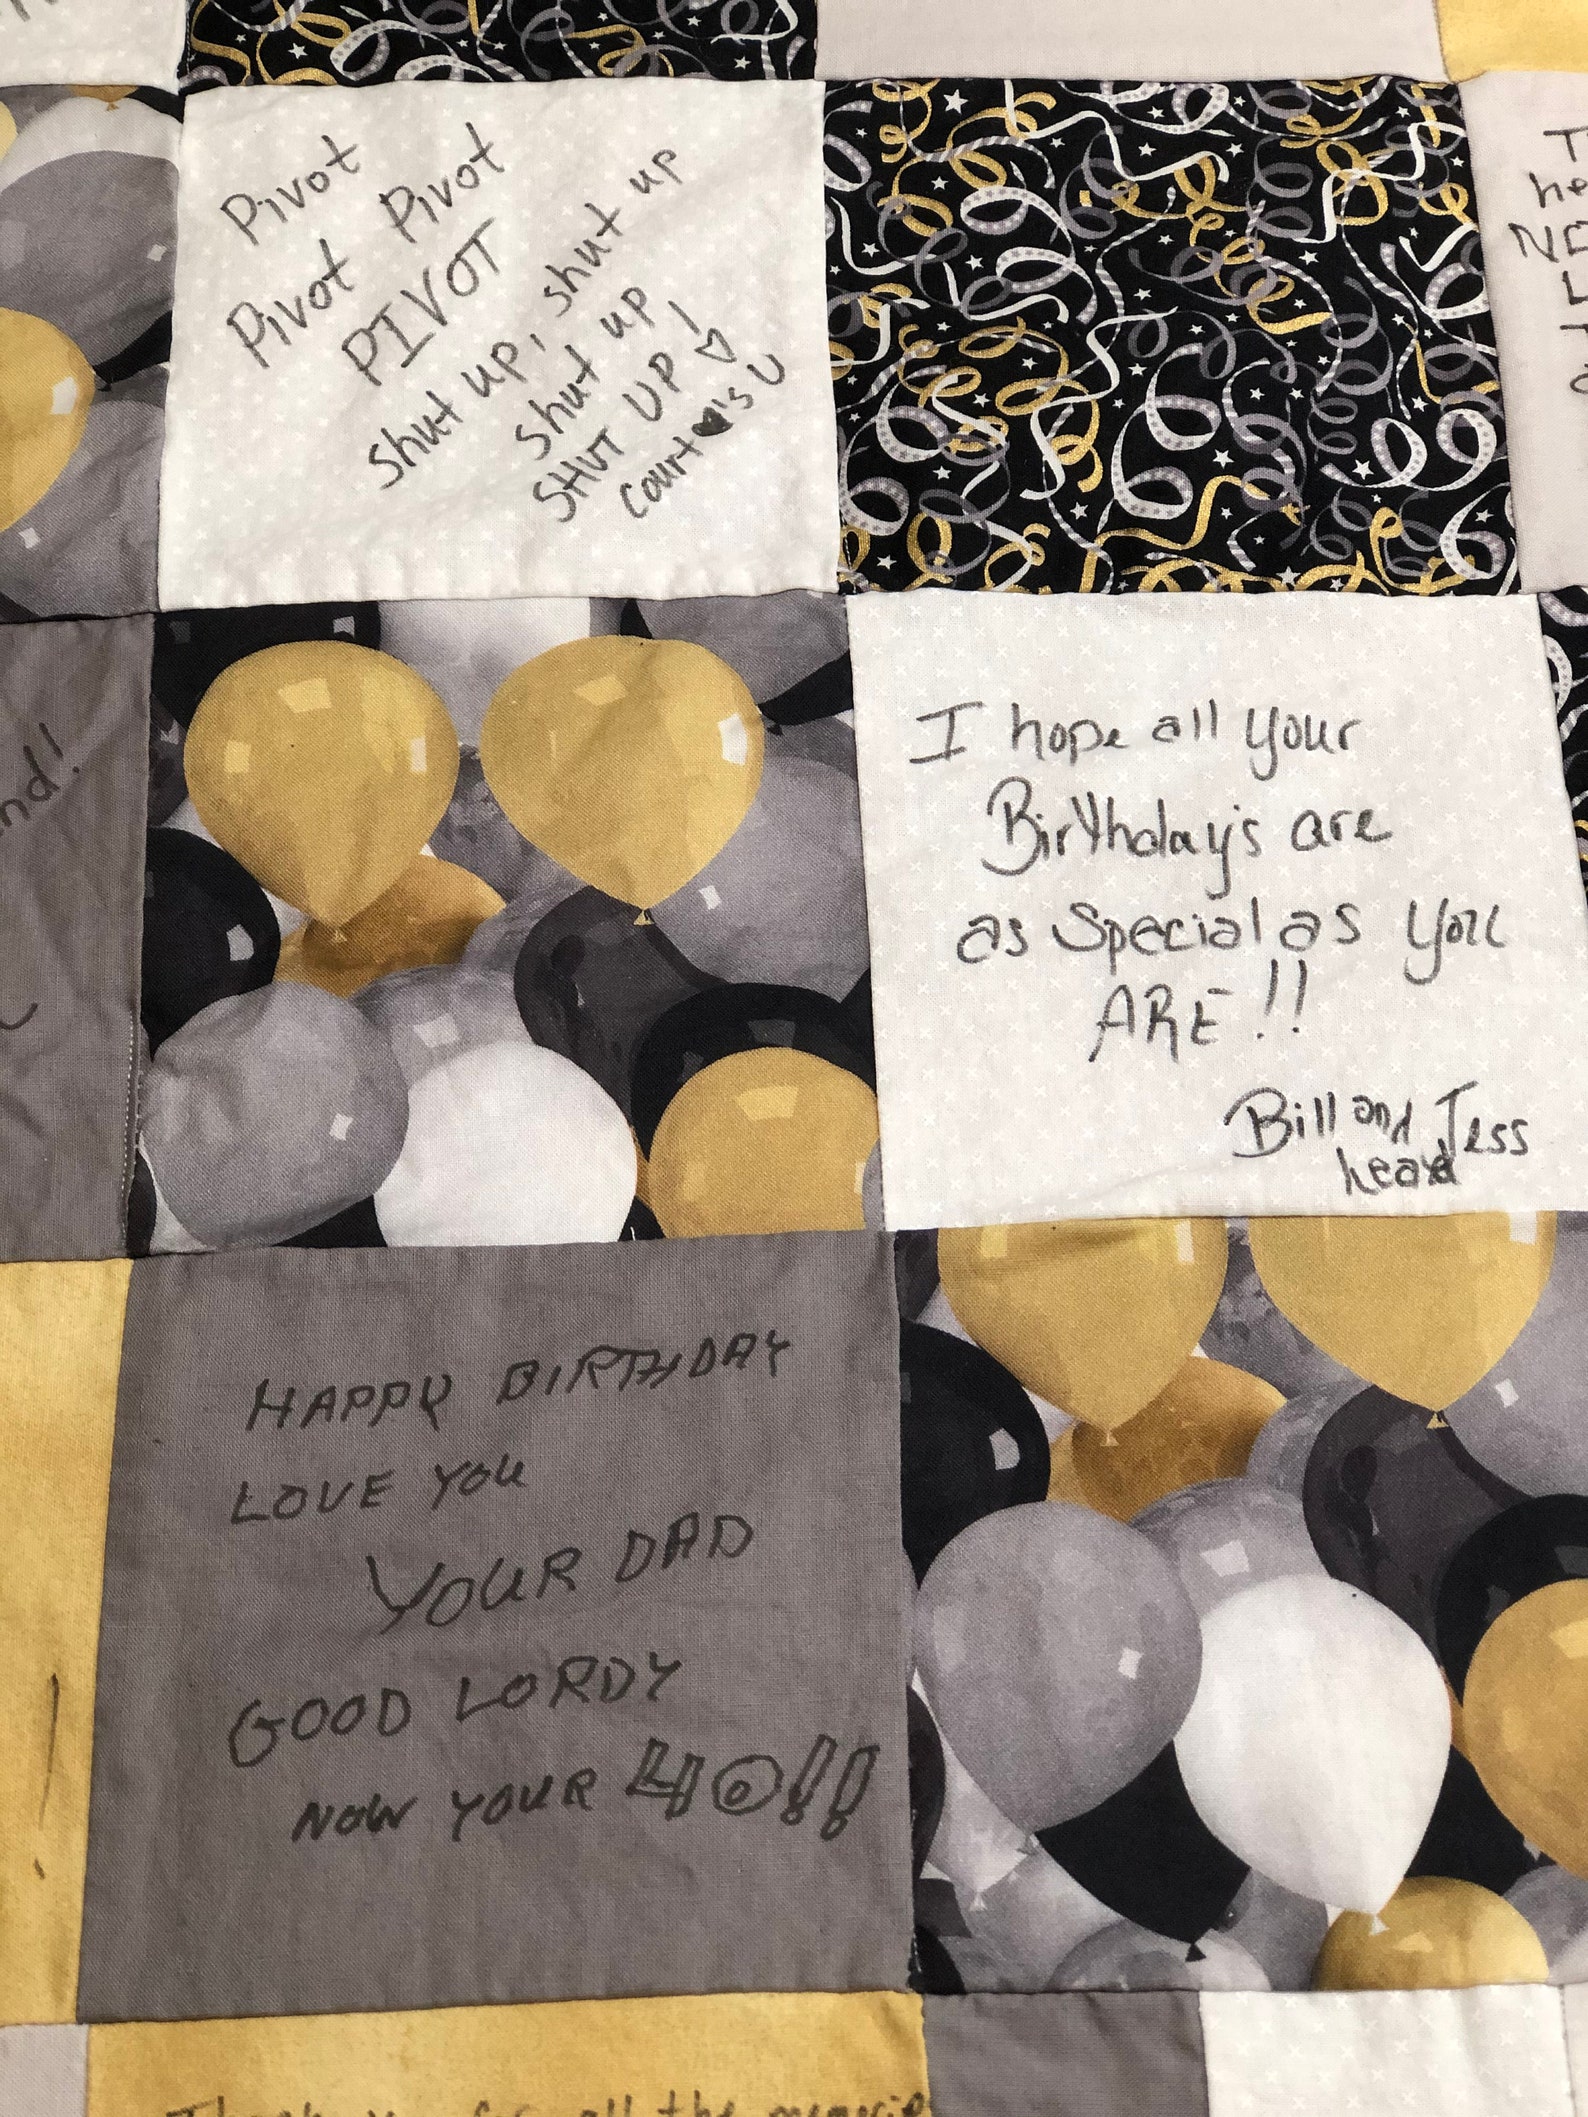 Pivot
Pivot Pivot
PIVOT
Shut up, shut up
shut up
SHUT UP!
court 's U
I hope all your
Birthday's are
as special as you
ARE!!
Bill and Jess
heard
HAPPY BIRTHDAY
LOVE YOU
YOUR DAD
GOOD LORDY
NOW YOUR 40!!
nd!
Thank you for all the memorie